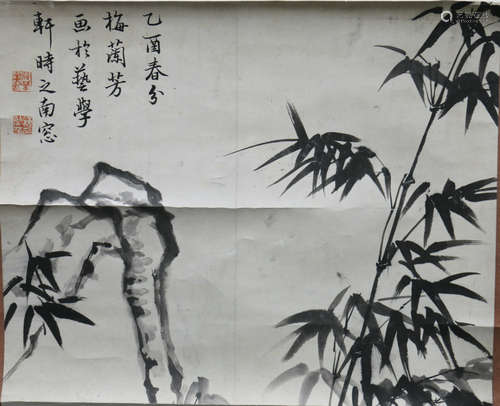 乙酉春分
梅蘭芳
画於藝學
軒時之南窓